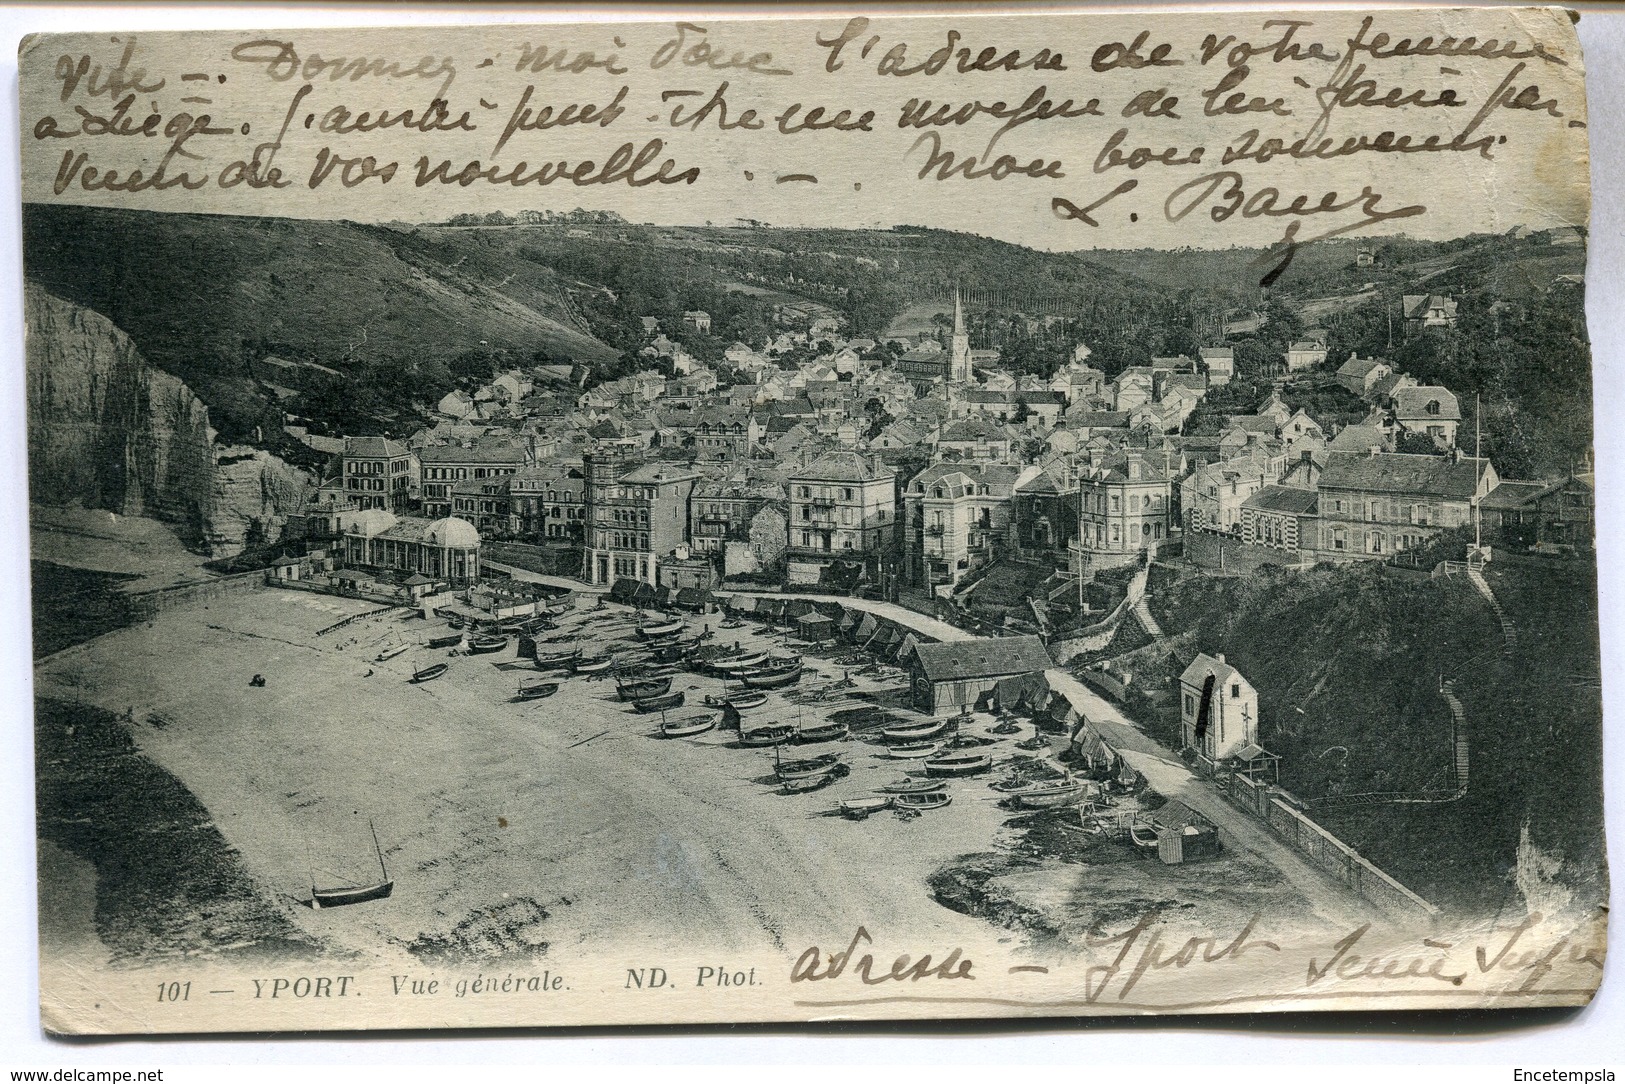 vite —. Donnez-moi donc l'adresse de votre femme
à Liège. J'aurai peut-être un moyen de lui faire par-
venir de vos nouvelles. —. Mon bon souvenir
L. Baur
101 — YPORT. Vue générale. ND. Phot.
adresse — Yport Seine Infre
delcampe.net
Encetempsla